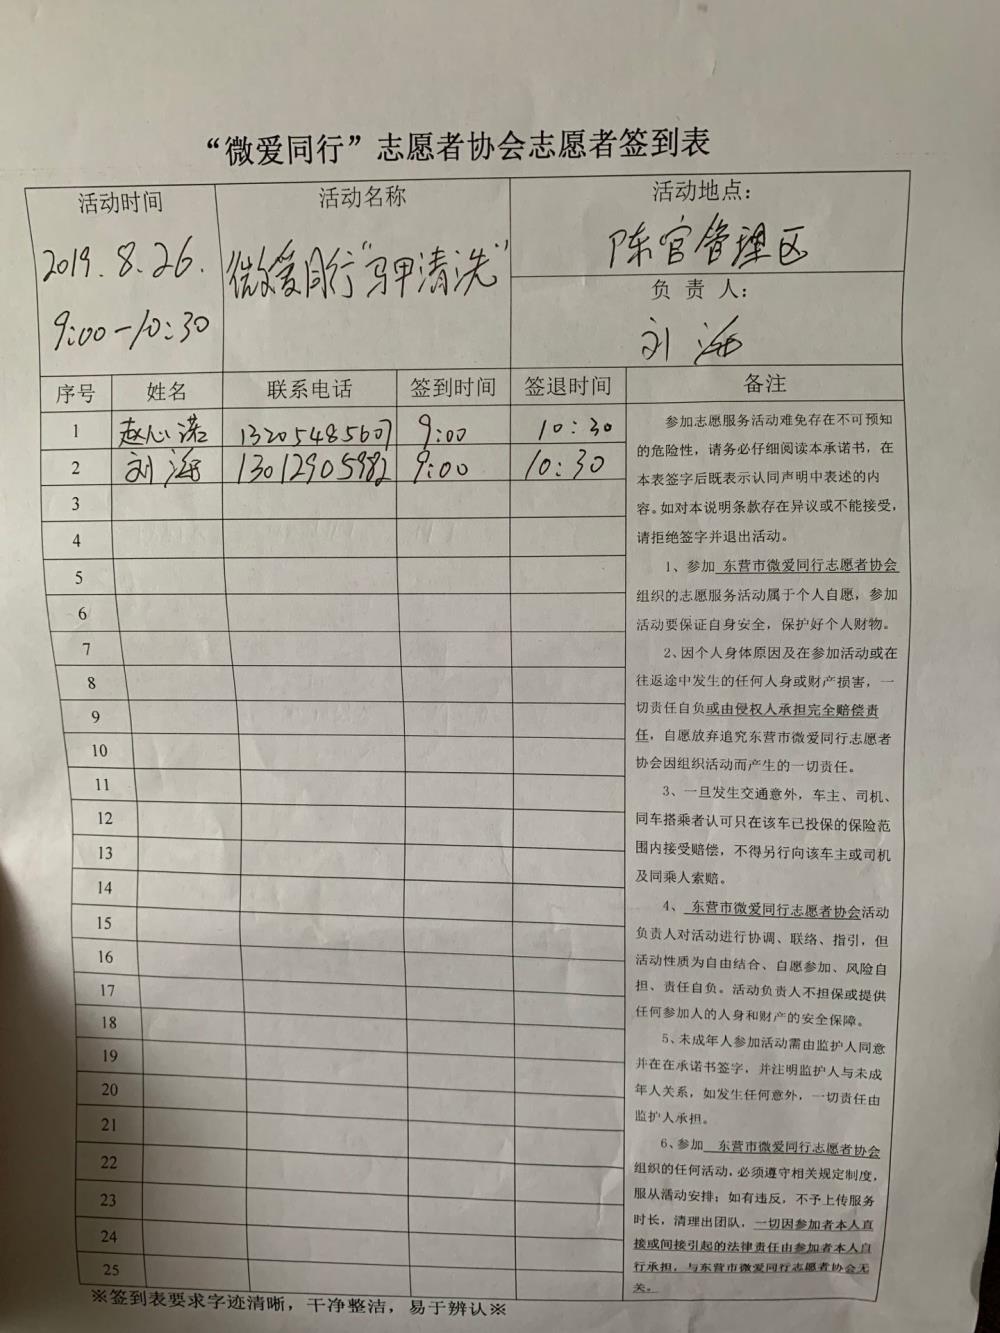 “微爱同行”志愿者协会志愿者签到表
活动时间
活动名称
活动地点：
2019.8.26.
9:00-10:30
微爱同行“马甲清洗”
陈官管理区
负 责 人：
刘 海
序号 姓名 联系电话 签到时间 签退时间 备注
1 赵心诺 13205485607 9:00 10:30
2 刘 海 13012905982 9:00 10:30
3
4
5
6
7
8
9
10
11
12
13
14
15
16
17
18
19
20
21
22
23
24
25
参加志愿服务活动难免存在不可预知
的危险性，请务必仔细阅读本承诺书，在
本表签字后既表示认同声明中表述的内
容。如对本说明条款存在异议或不能接受，
请拒绝签字并退出活动。
1、参加 东营市微爱同行志愿者协会
组织的志愿服务活动属于个人自愿，参加
活动要保证自身安全，保护好个人财物。
2、因个人身体原因及在参加活动或在
往返途中发生的任何人身或财产损害，一
切责任自负或由侵权人承担完全赔偿责
任，自愿放弃追究东营市微爱同行志愿者
协会因组织活动而产生的一切责任。
3、一旦发生交通意外，车主、司机、
同车搭乘者认可只在该车已投保的保险范
围内接受赔偿，不得另行向该车主或司机
及同乘人索赔。
4、 东营市微爱同行志愿者协会活动
负责人对活动进行协调、联络、指引，但
活动性质为自由结合、自愿参加、风险自
担、责任自负。活动负责人不担保或提供
任何参加人的人身和财产的安全保障。
5、未成年人参加活动需由监护人同意
并在在承诺书签字，并注明监护人与未成
年人关系，如发生任何意外，一切责任由
监护人承担。
6、参加 东营市微爱同行志愿者协会
组织的任何活动，必须遵守相关规定制度，
服从活动安排；如有违反，不予上传服务
时长，清理出团队，一切因参加者本人直
接或间接引起的法律责任由参加者本人自
行承担，与东营市微爱同行志愿者协会无
关。
※签到表要求字迹清晰，干净整洁，易于辨认※